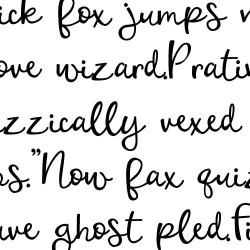 ick fox jumps
ove wizard.Prati
zzically vexed
s."Now fax qui
ve ghost pled.Fi